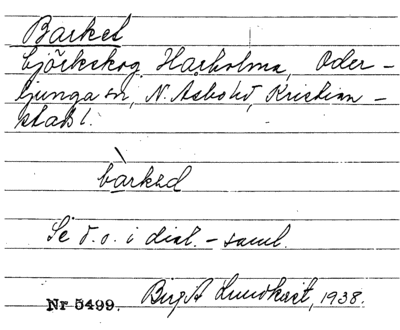 Barket
björkskog, Harholma, Oder-
ljunga sn, N. Åsbo hd, Kristian-
sta_ds_ l.
bàrkəd
Se d. o. i dial.-saml.
Nr 5499. Birgit Lundkvist, 1938.